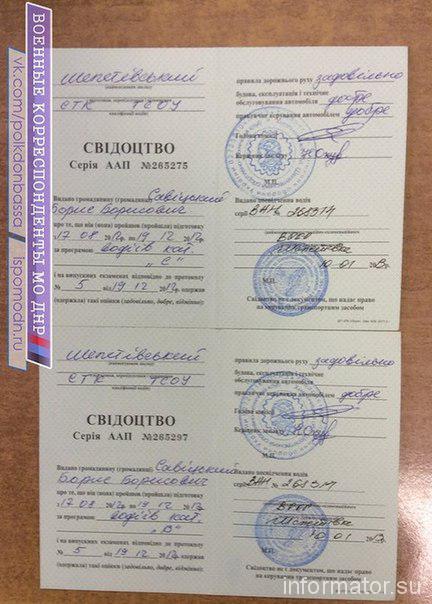 ВОЕННЫЕ КОРРЕСПОНДЕНТЫ МО ДНР
vk.com/polkdonbassa / ispomodn.ru
Шепетівський
СТК ТСОУ
СВІДОЦТВО
Серія ААП №265275
Видано громадянину (громадянці) Савіцький
Борис Борисович
про те, що він (вона) пройшов (пройшла) підготовку
з 17 08 20 р. до 19 12 20 р.
за програмою водіїв кат.
„С"
і на випускних екзаменах відповідно до протоколу
№ 5 від 19 12 одержав
(одержала) такі оцінки (задовільно, добре, відмінно):
правила дорожнього руху задовільно
будова, експлуатація і технічне
обслуговування автомобіля добре
практичне керування автомобілем добре
Голова комісії
Керівник закладу
М.П.
Видано посвідчення водія
серії ВАН
Шепетівка
10.01
М.П.
Свідоцтво не є документом, що надає право
на керування транспортним засобом
Шепетівський
СТК ТСОУ
СВІДОЦТВО
Серія ААП №265297
Видано громадянину (громадянці) Савіцький
Борис Борисович
про те, що він (вона) пройшов (пройшла) підготовку
з 17 08 20 р. до 19 12 20 р.
за програмою водіїв кат.
„В"
і на випускних екзаменах відповідно до протоколу
№ 5 від 19 12 одержав
(одержала) такі оцінки (задовільно, добре, відмінно):
правила дорожнього руху задовільно
будова, експлуатація і технічне
обслуговування автомобіля
практичне керування автомобілем добре
Голова комісії
Керівник закладу
М.П.
Видано посвідчення водія
серії ВАН №
Шепетівка
10.01
М.П.
Свідоцтво не є документом, що надає право
на керування транспортним засобом
informator.su